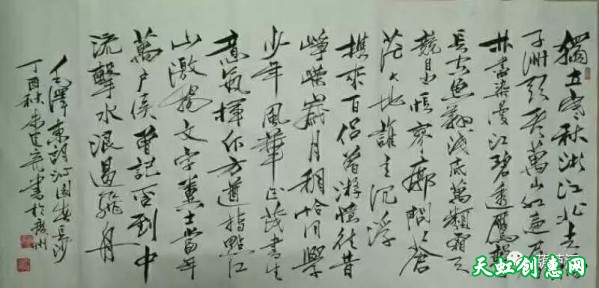 獨立寒秋湘江北去
子洲頭看萬山紅遍層
林盡染漫江碧透鷹擊
長空魚翔淺底萬類霜天
競自由悵寥廓問蒼
茫大地誰主沉浮
攜來百侶曾游憶往昔
崢嶸歲月稠恰同學
少年風華正茂書生
意氣揮斥方遒指點江
山激揚文字糞土當年
萬戶侯曾記否到中
流擊水浪遏飛舟
毛澤東詞沁園春長沙
丁酉秋書於
天虹创意网